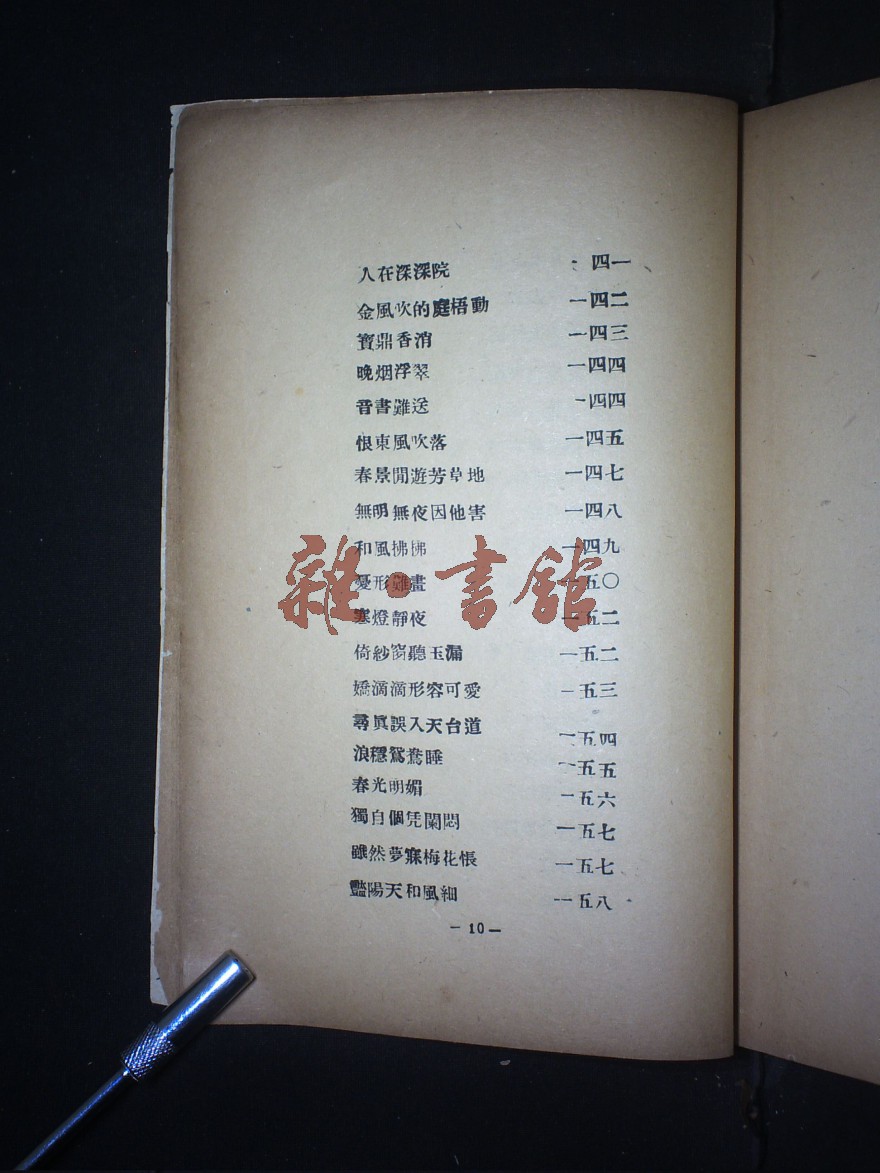 人在深深院 一四一
金風吹的庭梧動 一四二
寳鼎香消 一四三
晚烟浮翠 一四四
音書難送 一四四
恨東風吹落 一四五
春景閒遊芳草地 一四七
無明無夜因他害 一四八
和風拂拂 一四九
憂形難畫 一五〇
寒燈靜夜 一五二
倚紗窗聽玉漏 一五二
嬌滴滴形容可愛 一五三
尋眞誤入天台道 一五四
浪穩鴛鴦睡 一五五
春光明媚 一五六
獨自個凭闌悶 一五七
雖然夢寐梅花帳 一五七
豔陽天和風細 一五八
— 10 —
雜·書館